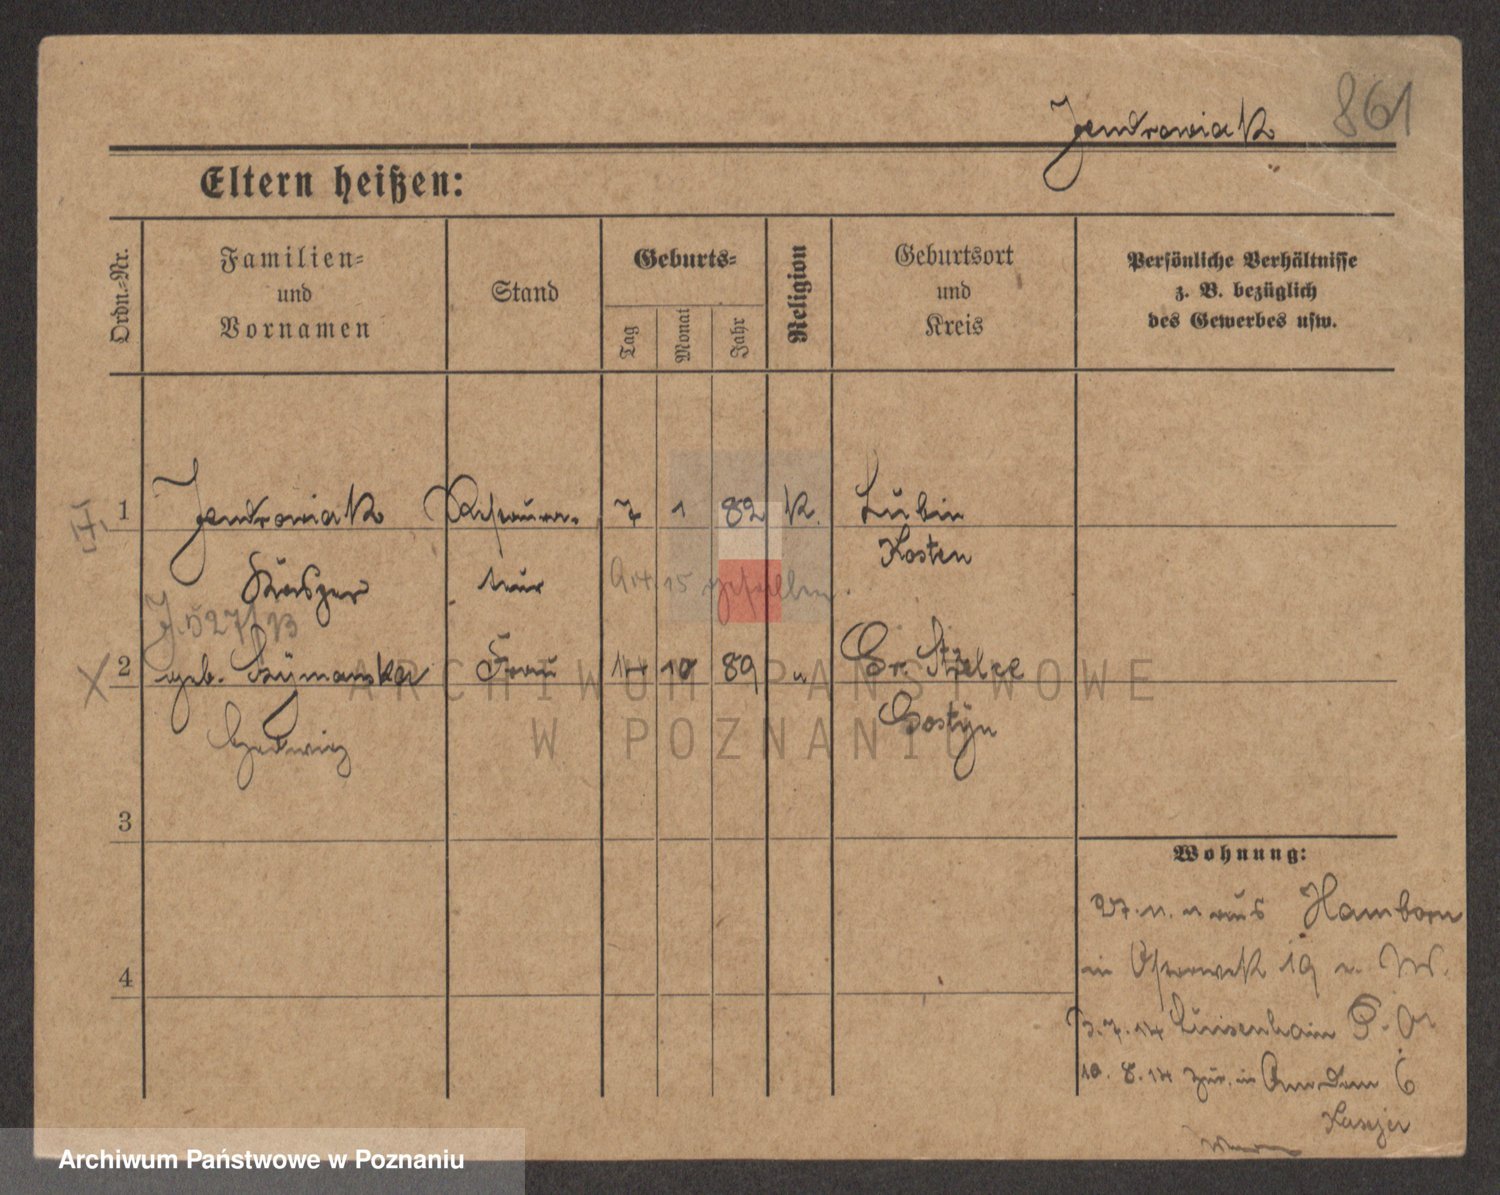 861
Jendrowiak
Eltern heißen:
Ordn.=Nr.
Familien=
und
Vornamen
Stand
Geburts=
Tag
Monat
Jahr
Religion
Geburtsort
und
Kreis
Persönliche Verhältnisse
z. B. bezüglich
des Gewerbes usw.
1 Jendrowiak Restaura- 7 1 82 K. Lubin
Kosten
Kasper teur 9.4.15 gefallen.
J. 527/13
2 geb. Frau 14 10 89 " Gr. Strzelce
Gostÿn
Hedwig
3
4
Wohnung:
27.11.11 aus Hamborn
in 19
3.7.14 Luisenhain P. O.
10.8.14 zur. in 6
ARCHIWUM PAŃSTWOWE
W POZNANIU
Archiwum Państwowe w Poznaniu